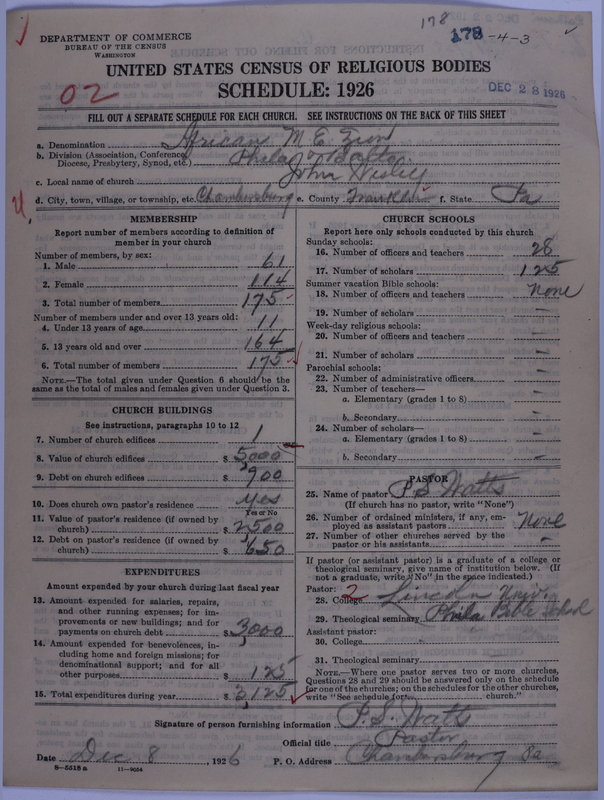 178
178-4-3
DEPARTMENT OF COMMERCE
BUREAU OF THE CENSUS
WASHINGTON
UNITED STATES CENSUS OF RELIGIOUS BODIES
SCHEDULE: 1926
DEC 28 1926
02
FILL OUT A SEPARATE SCHEDULE FOR EACH CHURCH. SEE INSTRUCTIONS ON THE BACK OF THIS SHEET
a. Denomination African M E Zion
b. Division (Association, Conference, Diocese, Presbytery, Synod, etc.) Phila & Balto.
c. Local name of church John Wesley
d. City, town, village, or township, etc. Chambersburg e. County Franklin f. State Pa
MEMBERSHIP
Report number of members according to definition of
member in your church
Number of members, by sex:
1. Male 61
2. Female 114
3. Total number of members 175
Number of members under and over 13 years old:
4. Under 13 years of age 11
5. 13 years old and over 164
6. Total number of members 175
NOTE.—The total given under Question 6 should be the
same as the total of males and females given under Question 3.
CHURCH BUILDINGS
See instructions, paragraphs 10 to 12
7. Number of church edifices 1
8. Value of church edifices $ 5000
9. Debt on church edifices $ 900
10. Does church own pastor's residence yes
Yes or No
11. Value of pastor's residence (if owned by
church) $ 2,500
12. Debt on pastor's residence (if owned by
church) $ 650
EXPENDITURES
Amount expended by your church during last fiscal year
13. Amount expended for salaries, repairs,
and other running expenses; for im-
provements or new buildings; and for
payments on church debt $ 3000
14. Amount expended for benevolences, in-
cluding home and foreign missions; for
denominational support; and for all
other purposes $ 125
15. Total expenditures during year $ 3,125
CHURCH SCHOOLS
Report here only schools conducted by this church
Sunday schools:
16. Number of officers and teachers 28
17. Number of scholars 125
Summer vacation Bible schools:
18. Number of officers and teachers None
19. Number of scholars –
Week-day religious schools:
20. Number of officers and teachers –
21. Number of scholars –
Parochial schools:
22. Number of administrative officers –
23. Number of teachers—
a. Elementary (grades 1 to 8) –
b. Secondary –
24. Number of scholars—
a. Elementary (grades 1 to 8) –
b. Secondary –
PASTOR
25. Name of pastor P S Watts
(If church has no pastor, write "None")
26. Number of ordained ministers, if any, em-
ployed as assistant pastors None
27. Number of other churches served by the
pastor or his assistants –
If pastor (or assistant pastor) is a graduate of a college or
theological seminary, give name of institution below. (If
not a graduate, write "No" in the space indicated.)
Pastor: 2
28. College Lincoln Univ.
29. Theological seminary Phila Bible School
Assistant pastor:
30. College
31. Theological seminary
NOTE.—Where one pastor serves two or more churches,
Questions 28 and 29 should be answered only on the schedule
for one of the churches; on the schedules for the other churches,
write "See schedule for church."
Signature of person furnishing information P. S. Watts
Official title Pastor
Date Dec 8, 1926 P. O. Address Chambersburg Pa
8—5518a 11—9084